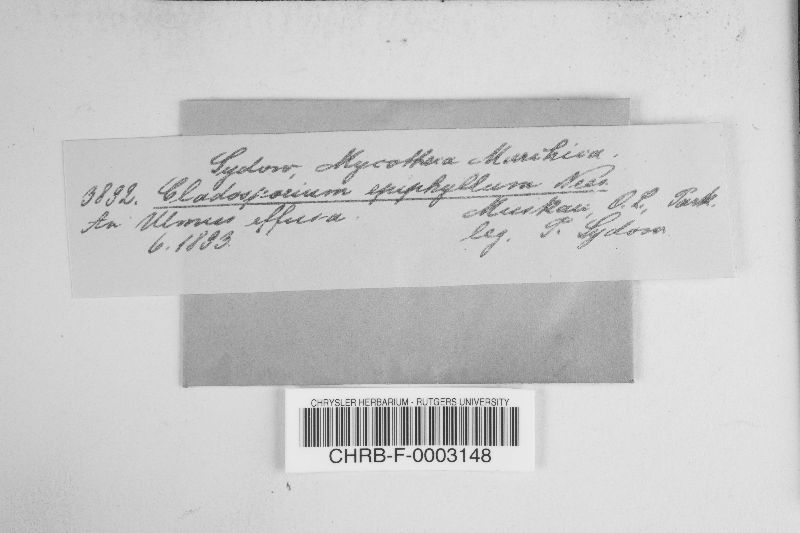 Sydow, Mycotheca Marchica.
3892. Cladosporium epiphyllum Nees.
An Ulmus effusa. Muskau, O.L., Park.
6. 1893. leg. P. Sydow
CHRYSLER HERBARIUM - RUTGERS UNIVERSITY
CHRB-F-0003148